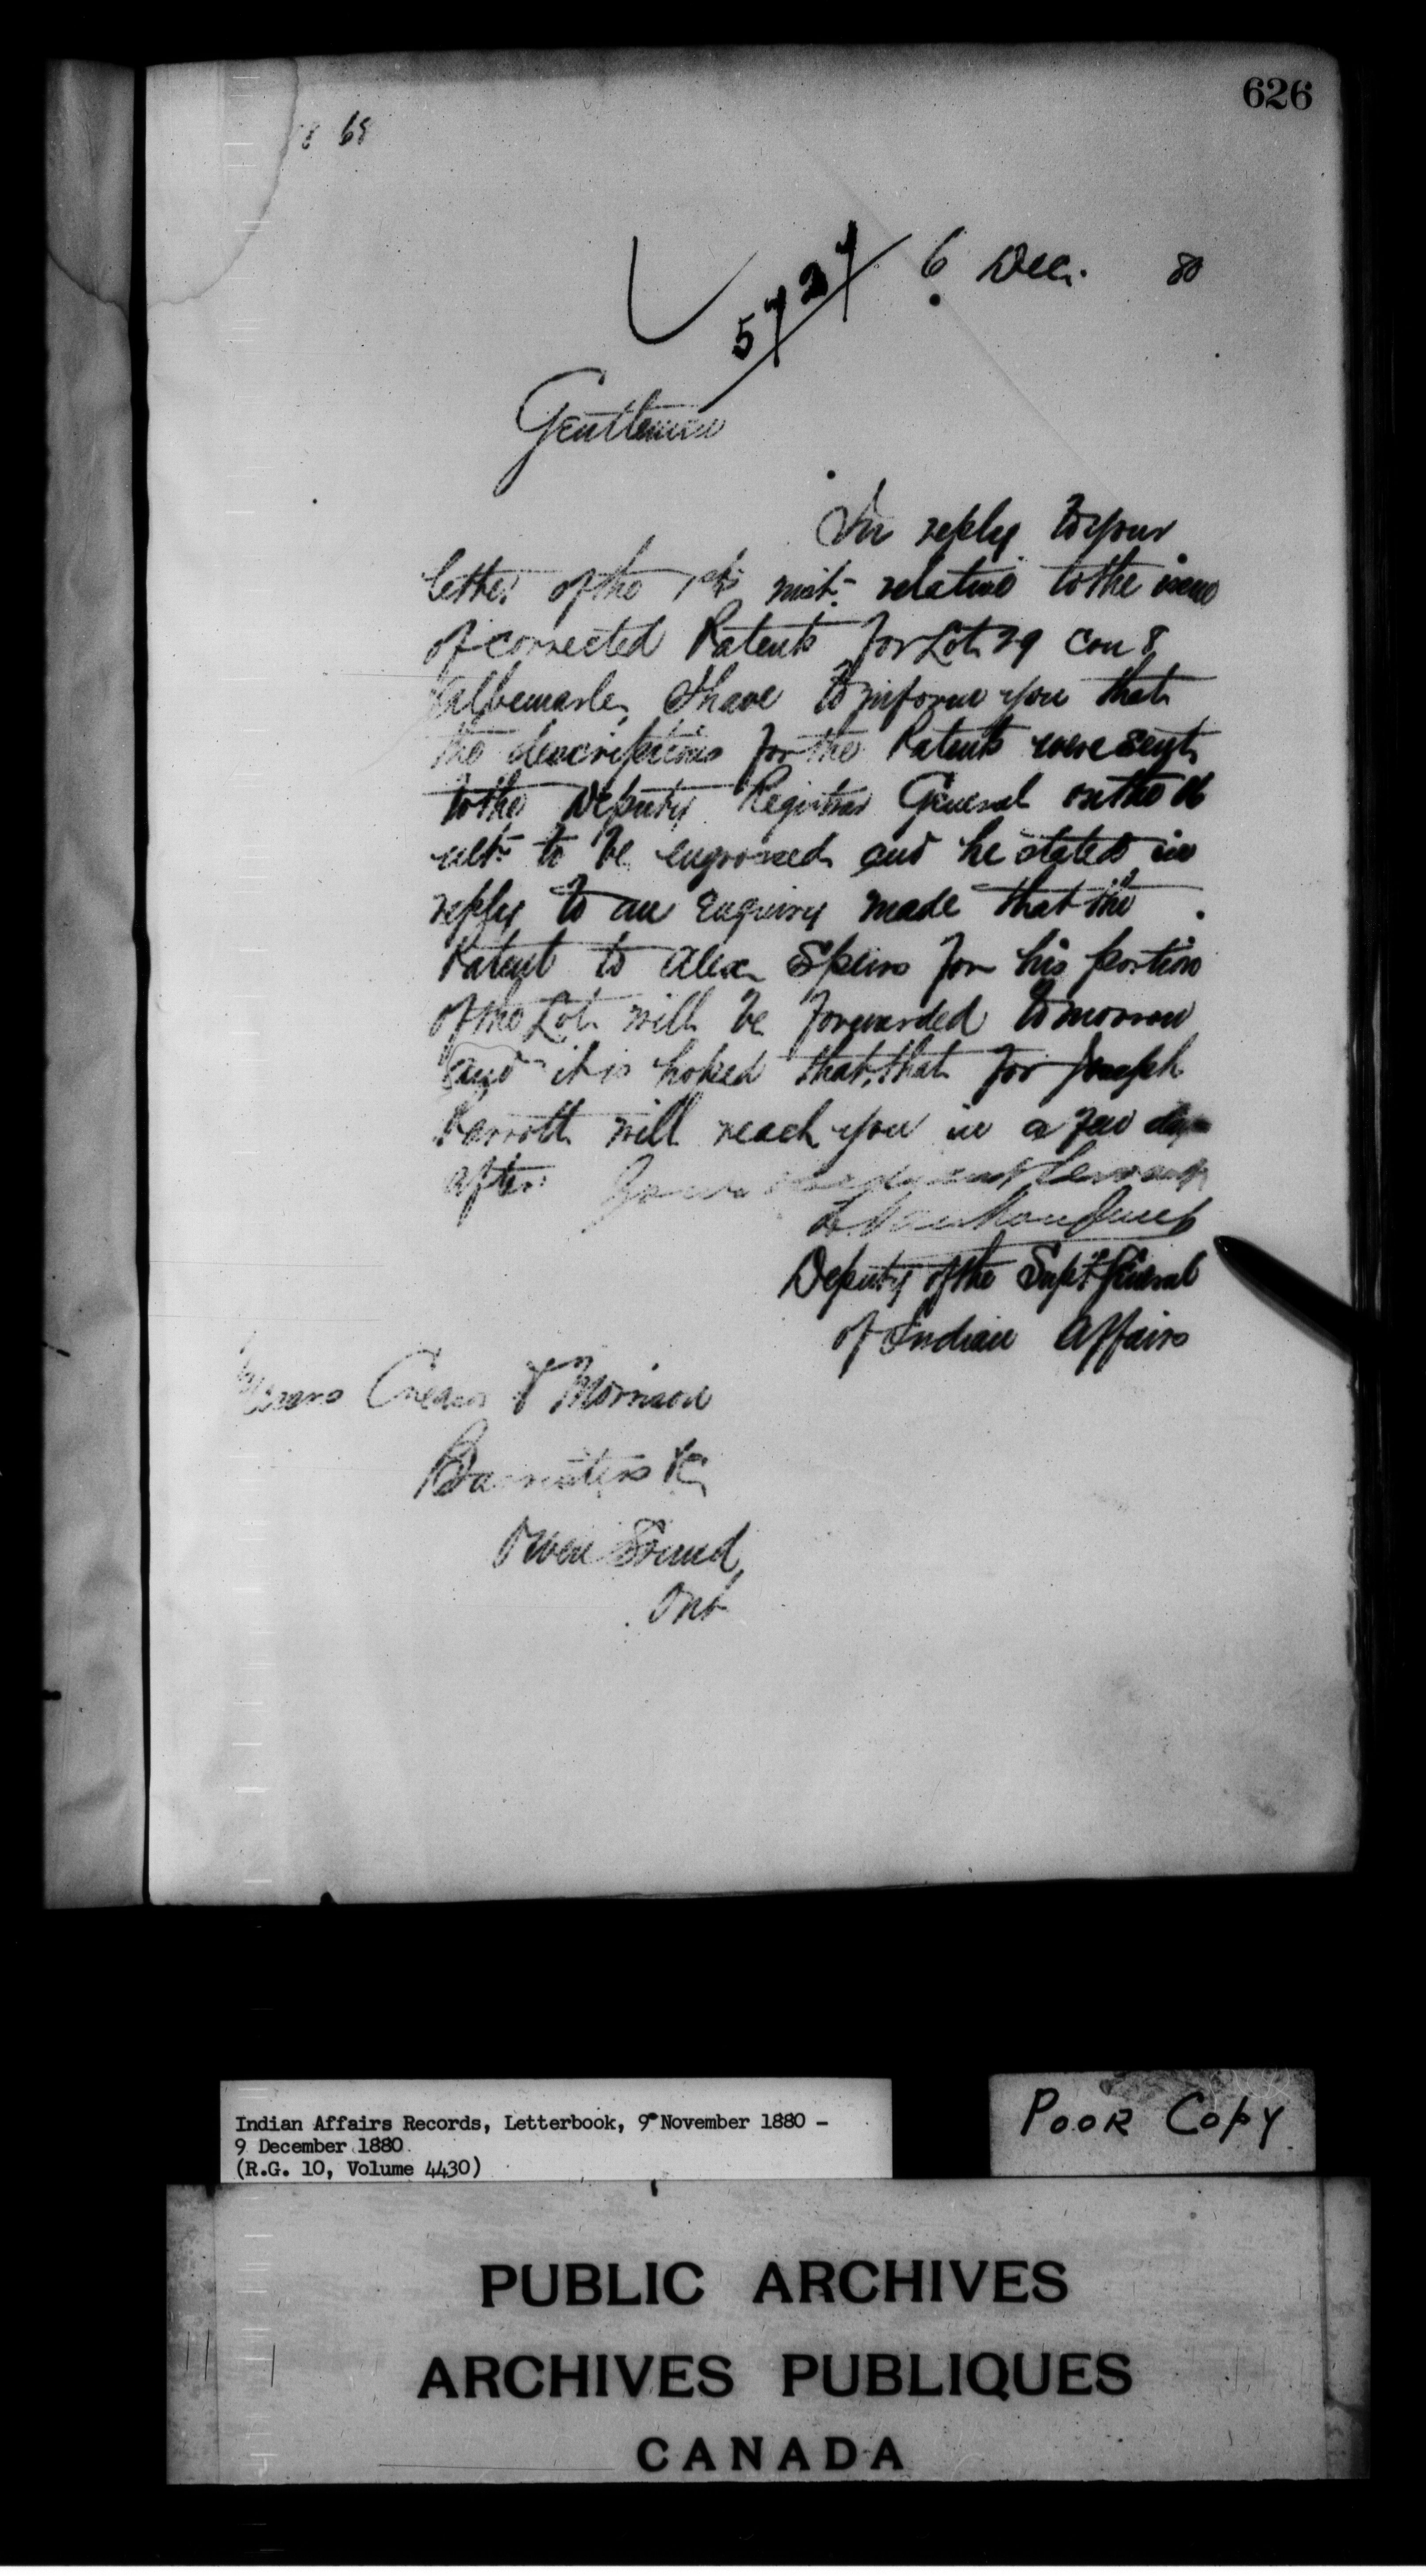 626
68
6 Dec. 80
Gentlemen
In reply to your
letter of the 1st inst. relative to the issue
of corrected Patents for Lot 29 Con 8,
Albemarle, I have to inform you that
the descriptions for the Patents were sent
to the Deputy Registrar General on the
ult. to be engrossed and he stated in
reply to an Enquiry made that the
Patent to Alex. Speirs for his portion
of the Lot will be forwarded tomorrow
and it is hoped that, that for Joseph
will reach you in a few days
after. Your obedient Servant
L Vankoughnet
Deputy of the Supt. General
of Indian Affairs
Messrs Creasor & Morrison
Barristers &c,
Owen Sound,
Ont
Indian Affairs Records, Letterbook, 9 November 1880 -
9 December 1880.
(R.G. 10, Volume 4430)
POOR COPY
PUBLIC ARCHIVES
ARCHIVES PUBLIQUES
CANADA